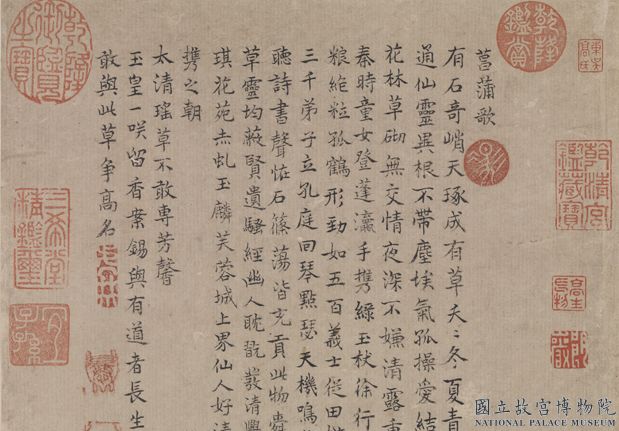 菖蒲歌
有石奇峭天琢成有草夭〻冬夏青
通仙靈異根不帶塵埃氣孤操愛結
花林草砌無交情夜深不嫌清露重
秦時童女登蓬瀛手携綠玉杖徐行
粮絶粒孤鶴形勁如五百義士從田
三千弟子立孔庭回琴點瑟天機鳴
聽詩書聲恠石篠蕩皆充貢此物舜
草靈均蔽賢遺騷經幽人耽翫發清興
琪花苑赤虬玉麟芙蓉城上界仙人好清
携之朝
太清瑤草不敢專芳馨
玉皇一咲留香案錫與有道者長生
敢與此草爭高名
乾隆鑑賞
乾清宮鑑藏寶
乾隆御覽之寶
三希堂精鑑璽
宜子孫
國立故宮博物院
NATIONAL PALACE MUSEUM